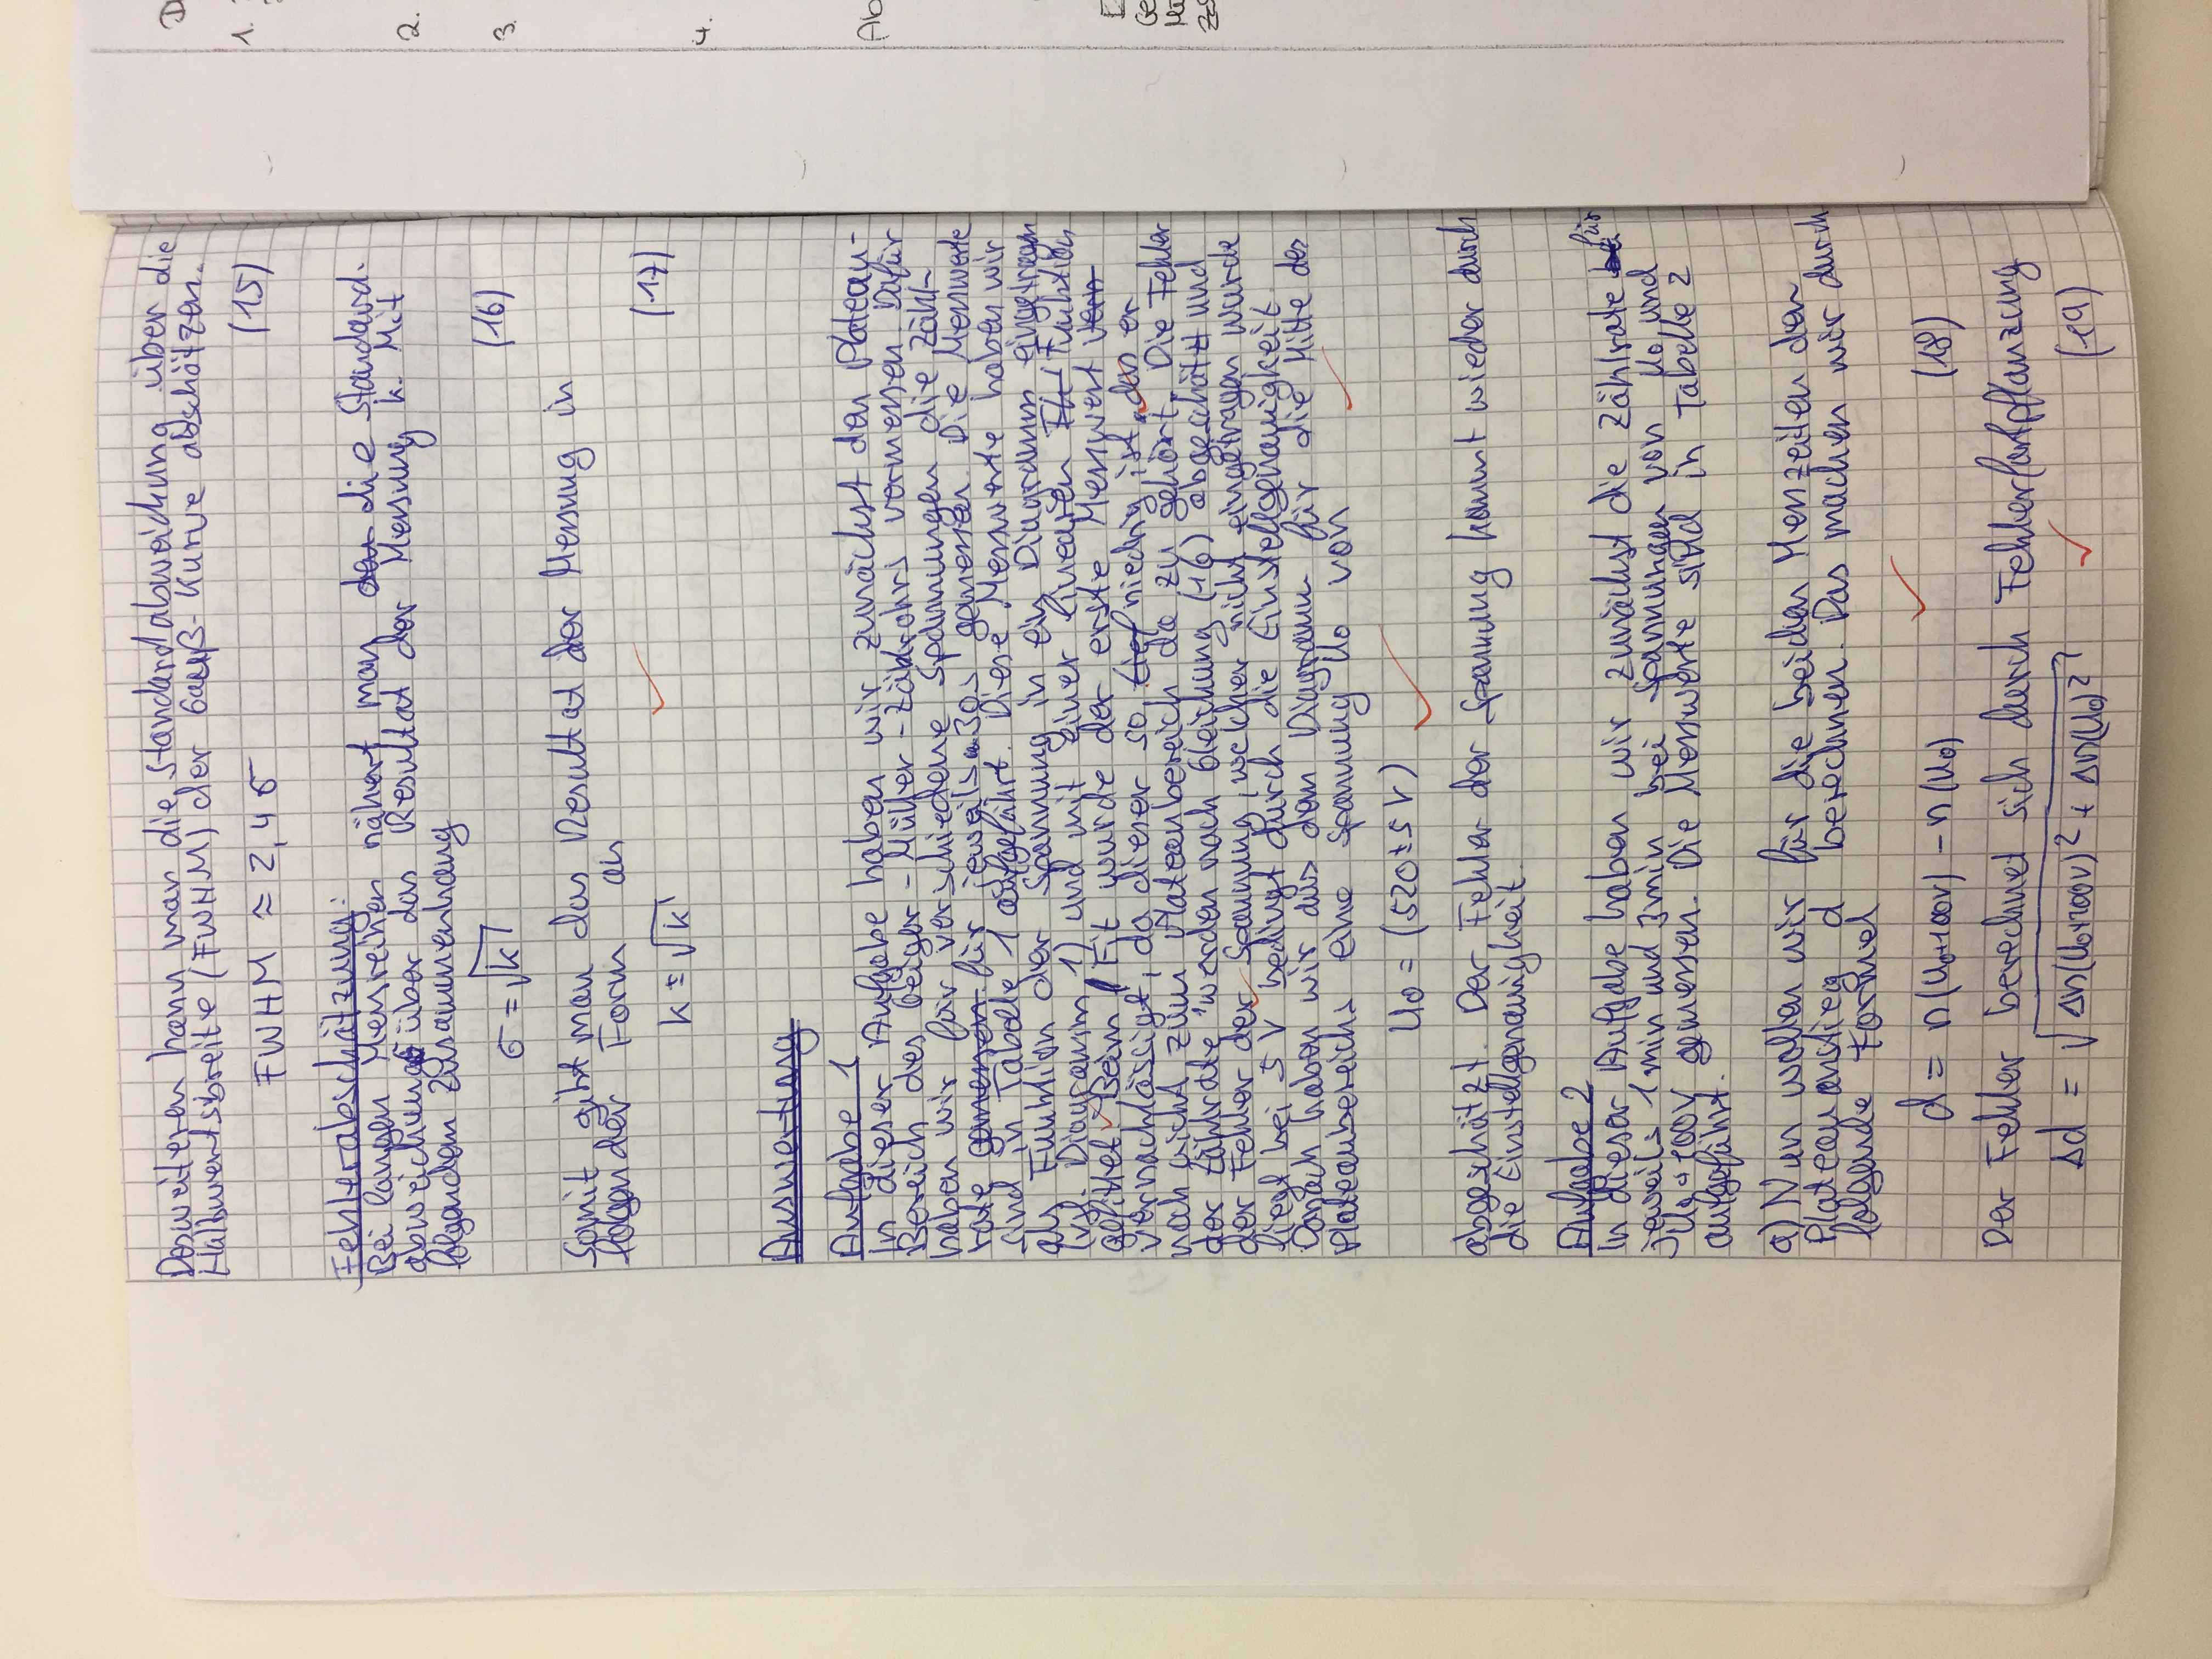 Desweiteren kann man die Standardabweichung über die
Halbwertsbreite (FWHM) der Gauß-Kurve abschätzen.
FWHM ≈ 2,4 σ (15)
Fehlerabschätzung:
Bei langen Messreihen nähert man die Standard-
abweichung σ über das Resultat der Messung k. Mit
folgendem Zusammenhang
σ = √k (16)
Somit gibt man das Resultat der Messung in
folgender Form an
k ± √k (17)
Auswertung
Aufgabe 1
In dieser Aufgabe haben wir zunächst den Plateau-
Bereich des Geiger-Müller-Zählrohrs vermessen. Dafür
haben wir für verschiedene Spannungen die Zähl-
rate gemessen für jeweils 30s gemessen. Die Messwerte
sind in Tabelle 1 aufgeführt. Diese Messwerte haben wir
als Funktion der Spannung in ein Diagramm eingetragen
(vgl. Diagramm 1) und mit einer linearen Funktion
gefittet. Beim Fit wurde der erste Messwert vern
vernachlässigt, da dieser so tief niedrig ist, das er
noch nicht zum Plateaubereich da zu gehört. Die Fehler
der Zählrate werden nach Gleichung (16) abgeschätzt und
der Fehler der Spannung, welcher nicht eingetragen wurde
liegt bei 5 V bedingt durch die Einstellgenauigkeit.
Danach haben wir aus dem Diagramm für die Mitte des
Plateaubereichs eine Spannung U0 von
U0 = (520 ± 5 V)
abgeschätzt. Der Fehler der Spannung kommt wieder durch
die Einstellgenauigkeit.
Aufgabe 2
In dieser Aufgabe haben wir zunächst die Zählrate für
jeweils 1min und 3min bei Spannungen von U0 und
U0 + 100V gemessen. Die Messwerte sind in Tabelle 2
aufgeführt.
a) Nun wollen wir für die beiden Messzeiten den
Plateauanstieg d berechnen. Das machen wir durch
folgende Formel
d = n(U0+100V) - n(U0) (18)
Der Fehler berechnet sich durch Fehlerfortpflanzung
Δd = √Δn(U0+100V)² + Δn(U0)² (19)
1.
2.
3.
4.
Ab
Ge